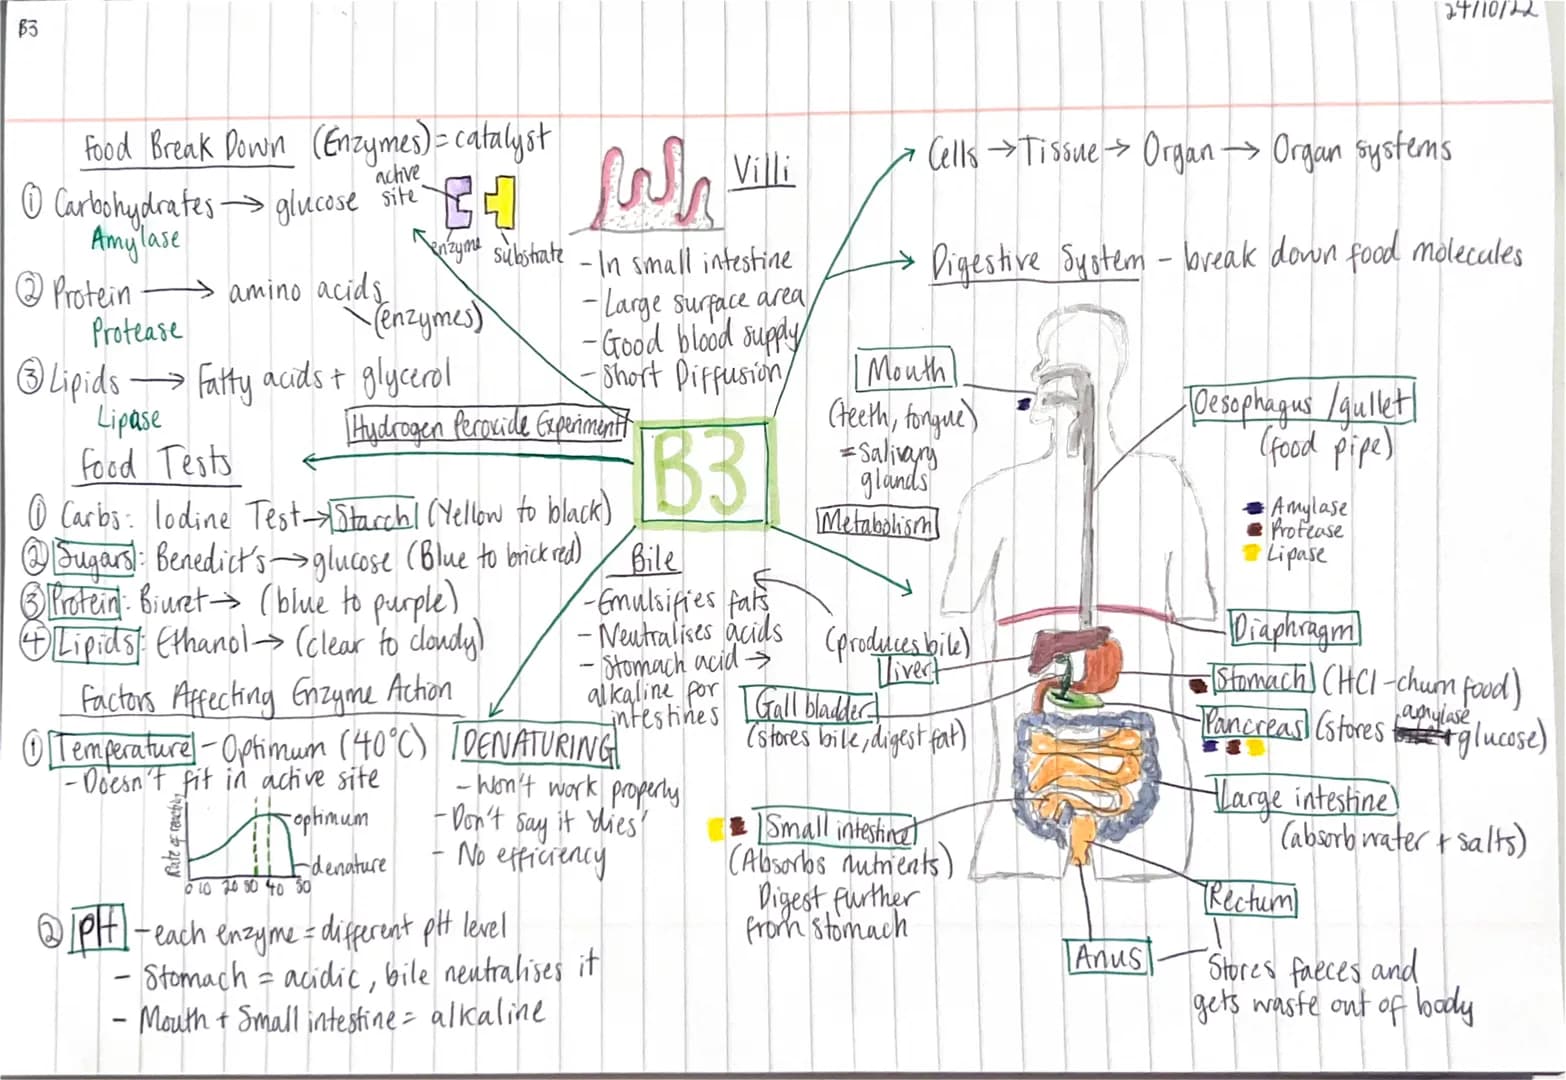 B3
24/10/22
Food Break Down (Enzymes) = catalyst
① Carbohydrates → glucose
Amylase
active
site
enzyme
substrate
② Protein → amino acids
(enzymes)
Protease
③ Lipids → Fatty acids + glycerol
Lipase
Hydrogen Peroxide Experiment
Food Tests
① Carbs: Iodine Test → Starch (Yellow to black)
② Sugars: Benedict's → glucose (Blue to brick red)
③ Protein: Biuret → (blue to purple)
④ Lipids: Ethanol → (clear to cloudy)
Factors Affecting Enzyme Action
① Temperature - Optimum (40°C)
- Doesn't fit in active site
Rate of reaction
optimum
denature
0 10 20 30 40 50
② pH - each enzyme = different pH level
- Stomach = acidic, bile neutralises it
- Mouth + Small intestine = alkaline
Villi
- In small intestine
- Large surface area
- Good blood supply
- Short Diffusion
B3
Bile
- Emulsifies fats
- Neutralises acids
- Stomach acid →
alkaline for
intestines
DENATURING
- Won't work properly
- Don't say it 'dies'
- No efficiency
Cells → Tissue → Organ → Organ systems
Digestive System - break down food molecules
Mouth
(teeth, tongue)
= Salivary
glands
Metabolism
Oesophagus / gullet
(food pipe)
Amylase
Protease
Lipase
Diaphragm
(produces bile)
Liver
Stomach (HCl - churn food)
Gall bladder
(stores bile, digest fat)
Pancreas (stores amylase + glucose)
Large intestine
(absorb water + salts)
Small intestine
(Absorbs nutrients)
Digest further
from stomach
Rectum
Anus
Stores faeces and
gets waste out of body